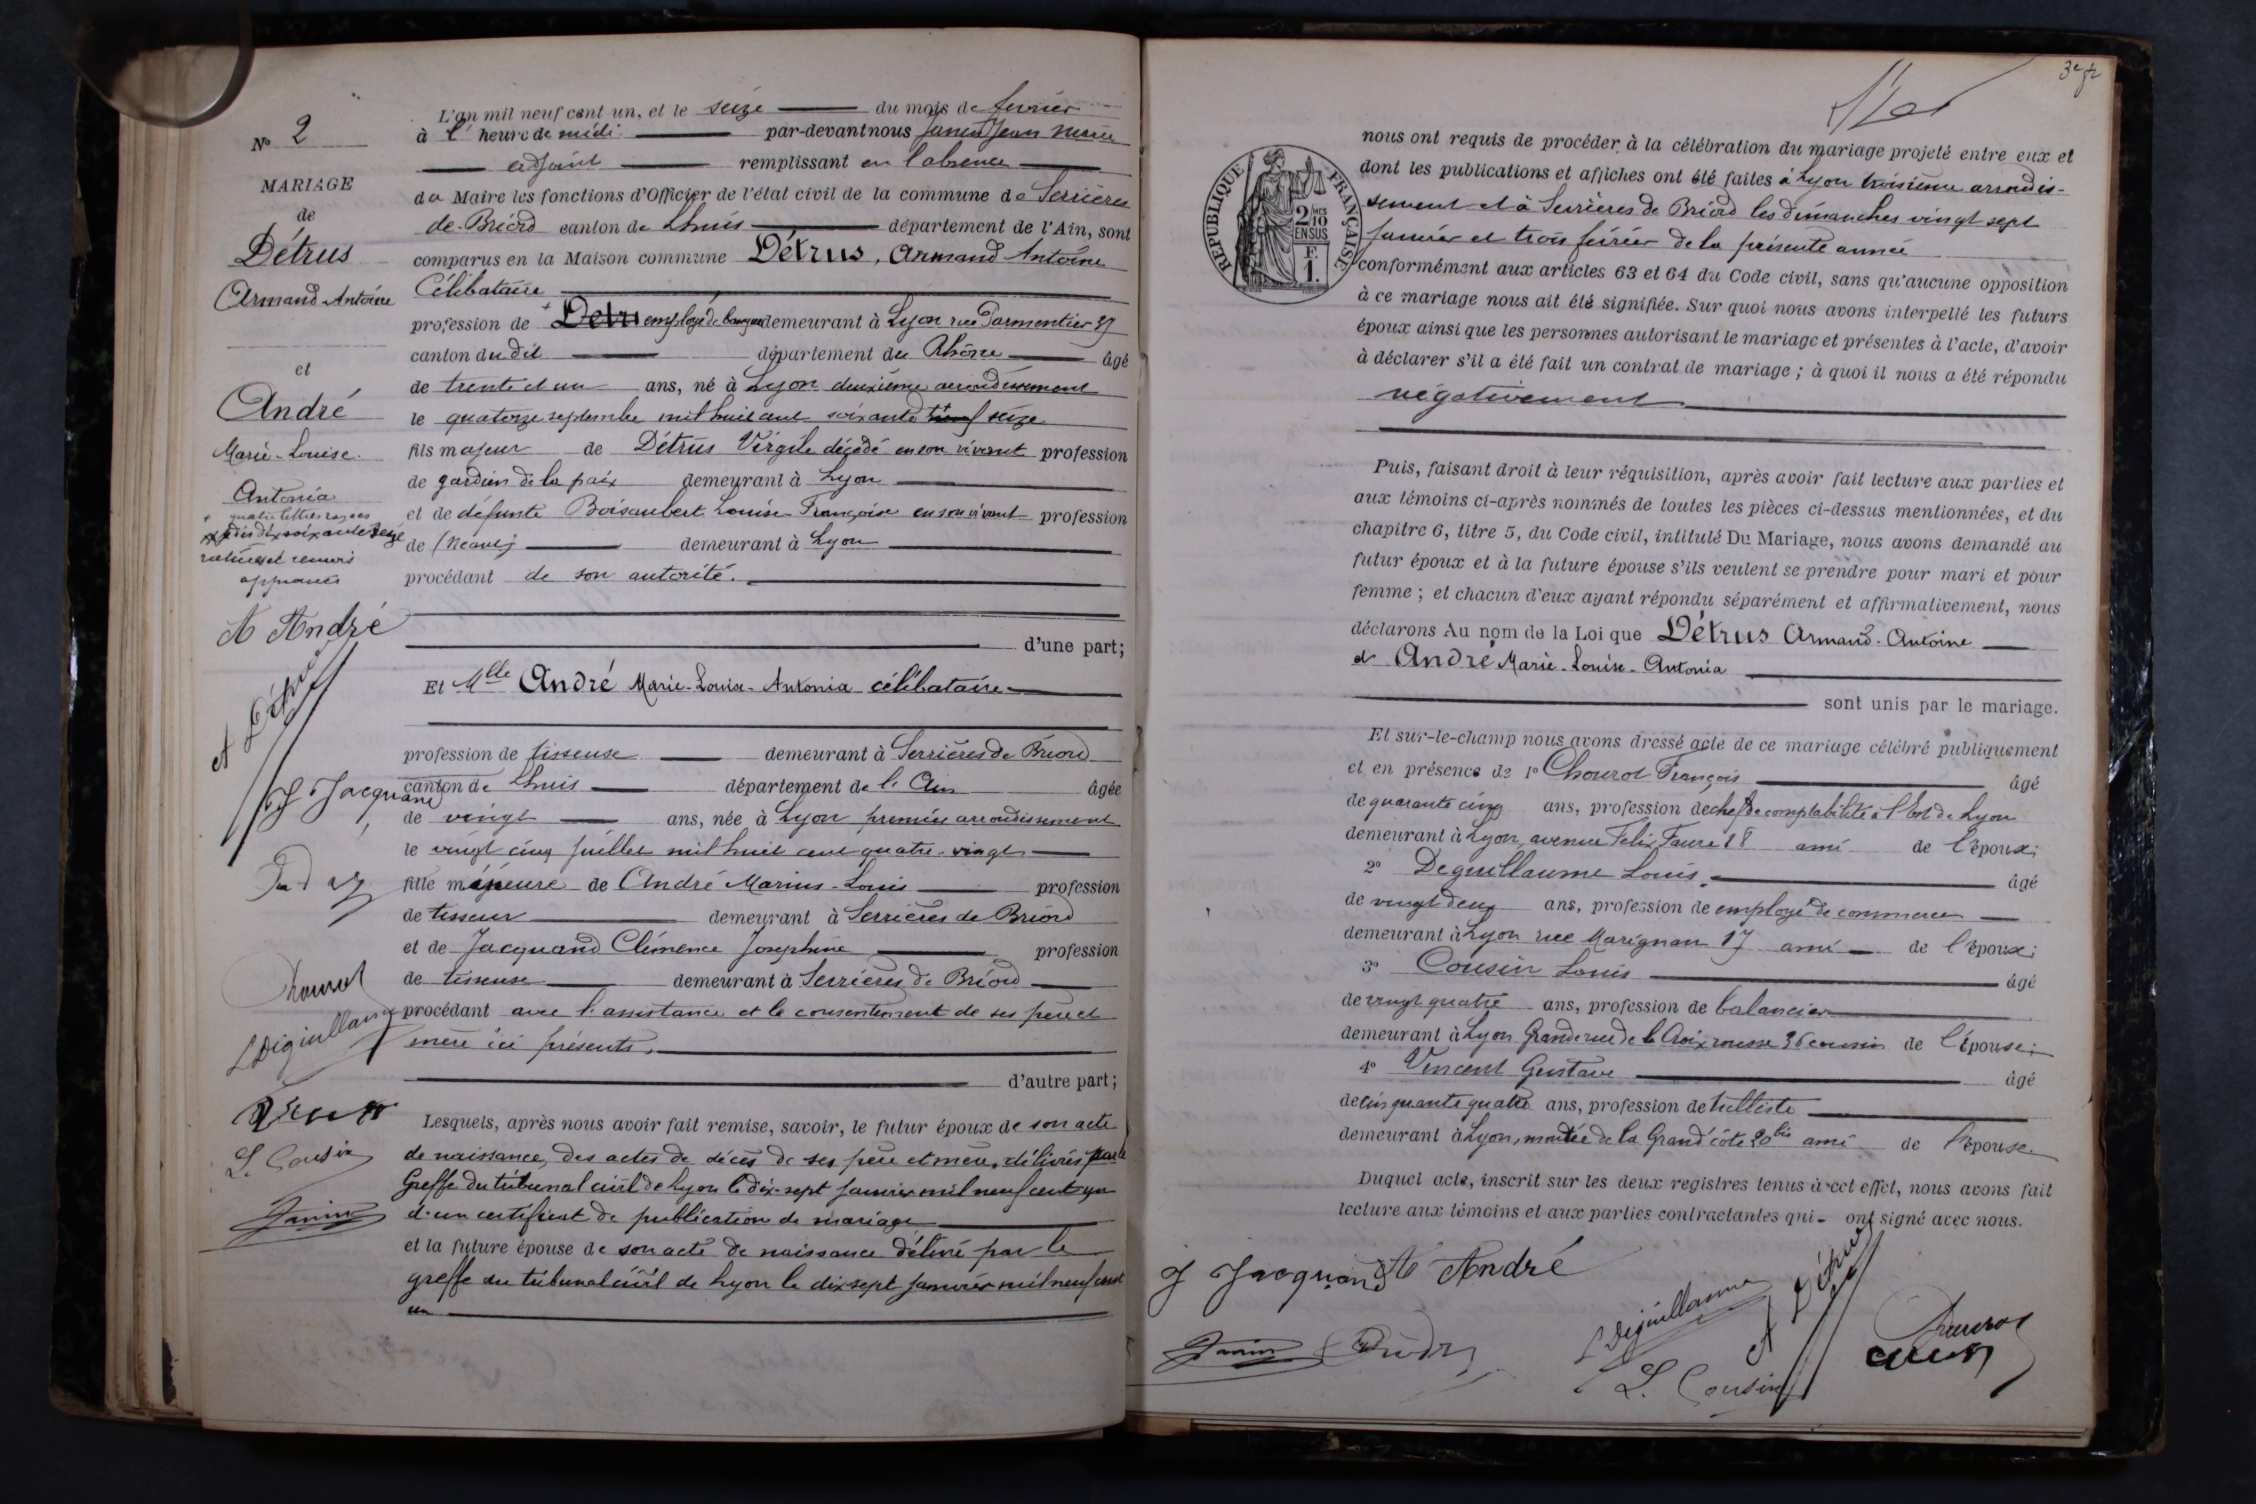 N° 2
MARIAGE
de
Détrus
Armand Antoine
et
André
Marie-Louise
Antonia
quatre lettres rayées
approuvés
A André
A Détrus
J Jacquand
Chourot
L Deguillaume
L. Cousin
Janin
L'an mil neuf cent un, et le seize du mois de février
à l' heure de midi par-devant nous Janin Jean Marie
adjoint remplissant en l'absence
du Maire les fonctions d'Officier de l'état civil de la commune de Serrières
de-Briord canton de Lhuis département de l'Ain, sont
comparus en la Maison commune Détrus, Armand Antoine
Célibataire
profession de Detru employé de banque demeurant à Lyon rue Parmentier 37
canton du dit département du Rhône âgé
de trente et un ans, né à Lyon deuxième arrondissement
le quatorze septembre mil huit cent soixante seize
fils majeur de Détrus Virgile décédé en son vivant profession
de gardien de la paix demeurant à Lyon
et de défunte Boisaubert Louise Françoise en son vivant profession
de (Néant) demeurant à Lyon
procédant de son autorité.
d'une part;
Et Mlle André Marie-Louise-Antonia célibataire
profession de tisseuse demeurant à Serrières de Briord
canton de Lhuis département de l'Ain âgée
de vingt ans, née à Lyon premier arrondissement
le vingt cinq juillet mil huit cent quatre-vingt
fille mineure de André Marius-Louis profession
de tisseur demeurant à Serrières de Briord
et de Jacquand Clémence Joséphine profession
de tisseuse demeurant à Serrières de Briord
procédant avec l'assistance et le consentement de ses père et
mère ici présents.
d'autre part;
Lesquels, après nous avoir fait remise, savoir, le futur époux de son acte
de naissance, des actes de décès de ses père et mère, délivrés par le
Greffe du tribunal civil de Lyon le dix-sept janvier mil neuf cent un
d'un certificat de publication de mariage
et la future épouse de son acte de naissance délivré par le
greffe du tribunal civil de Lyon le dix sept janvier mil neuf cent
un
3e f
RÉPUBLIQUE FRANÇAISE
2/10 EN SUS
F. 1.
nous ont requis de procéder à la célébration du mariage projeté entre eux et
dont les publications et affiches ont été faites à Lyon troisième arrondis-
sement et à Serrières de Briord les dimanches vingt sept
janvier et trois février de la présente année
conformément aux articles 63 et 64 du Code civil, sans qu'aucune opposition
à ce mariage nous ait été signifiée. Sur quoi nous avons interpellé les futurs
époux ainsi que les personnes autorisant le mariage et présentes à l'acte, d'avoir
à déclarer s'il a été fait un contrat de mariage ; à quoi il nous a été répondu
négativement
Puis, faisant droit à leur réquisition, après avoir fait lecture aux parties et
aux témoins ci-après nommés de toutes les pièces ci-dessus mentionnées, et du
chapitre 6, titre 5, du Code civil, intitulé Du Mariage, nous avons demandé au
futur époux et à la future épouse s'ils veulent se prendre pour mari et pour
femme ; et chacun d'eux ayant répondu séparément et affirmativement, nous
déclarons Au nom de la Loi que Détrus Armand-Antoine
et André Marie-Louise-Antonia
sont unis par le mariage.
Et sur-le-champ nous avons dressé acte de ce mariage célébré publiquement
et en présence de 1° Chourot François âgé
de quarante cinq ans, profession de chef de comptabilité à l' de Lyon
demeurant à Lyon, avenue Felix Faure 18 ami de l'époux;
2° Deguillaume Louis. âgé
de vingt deux ans, profession de employé de commerce
demeurant à Lyon rue Marignan 17 ami de l'époux;
3° Cousin Louis âgé
de vingt quatre ans, profession de balancier
demeurant à Lyon Grande rue de la Croix rousse 36 cousin de l'épouse;
4° Vincent Gustave âgé
de cinquante quatre ans, profession de tulliste
demeurant à Lyon, montée de la Grand'côte 20 bis ami de l'épouse
Duquel acte, inscrit sur les deux registres tenus à cet effet, nous avons fait
lecture aux témoins et aux parties contractantes qui ont signé avec nous.
J Jacquand A André
L Deguillaume A Détrus
Janin Chourot
L. Cousin